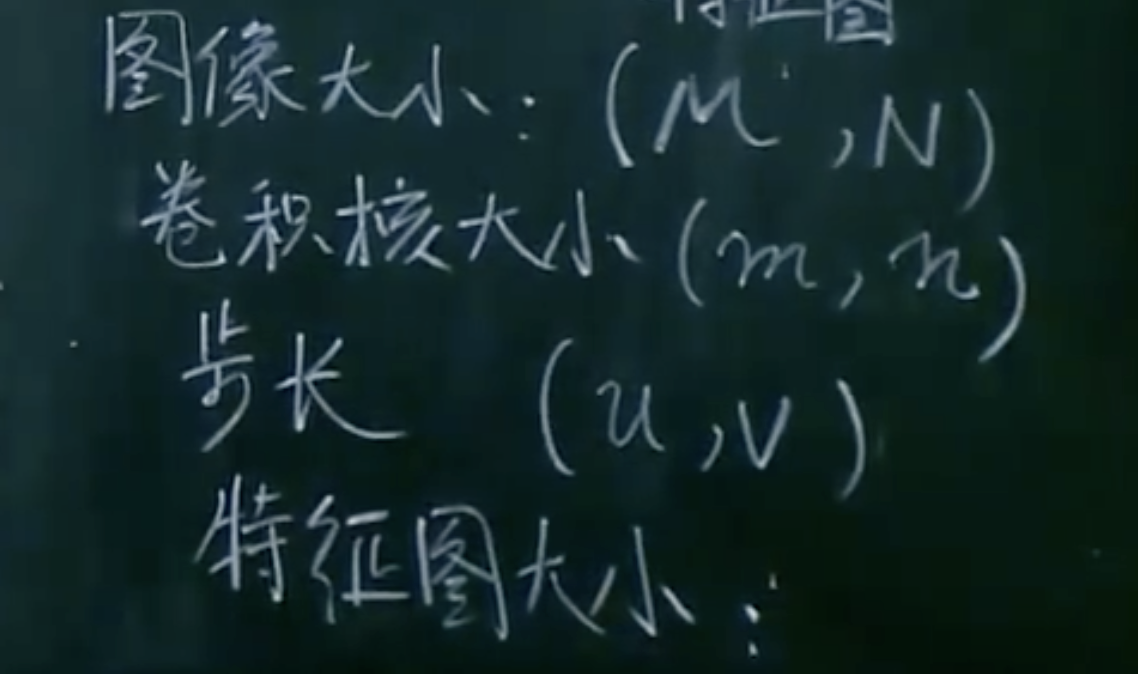 特征图
图像大小:(M,N)
卷积核大小(m,n)
步长 (u,v)
特征图大小: